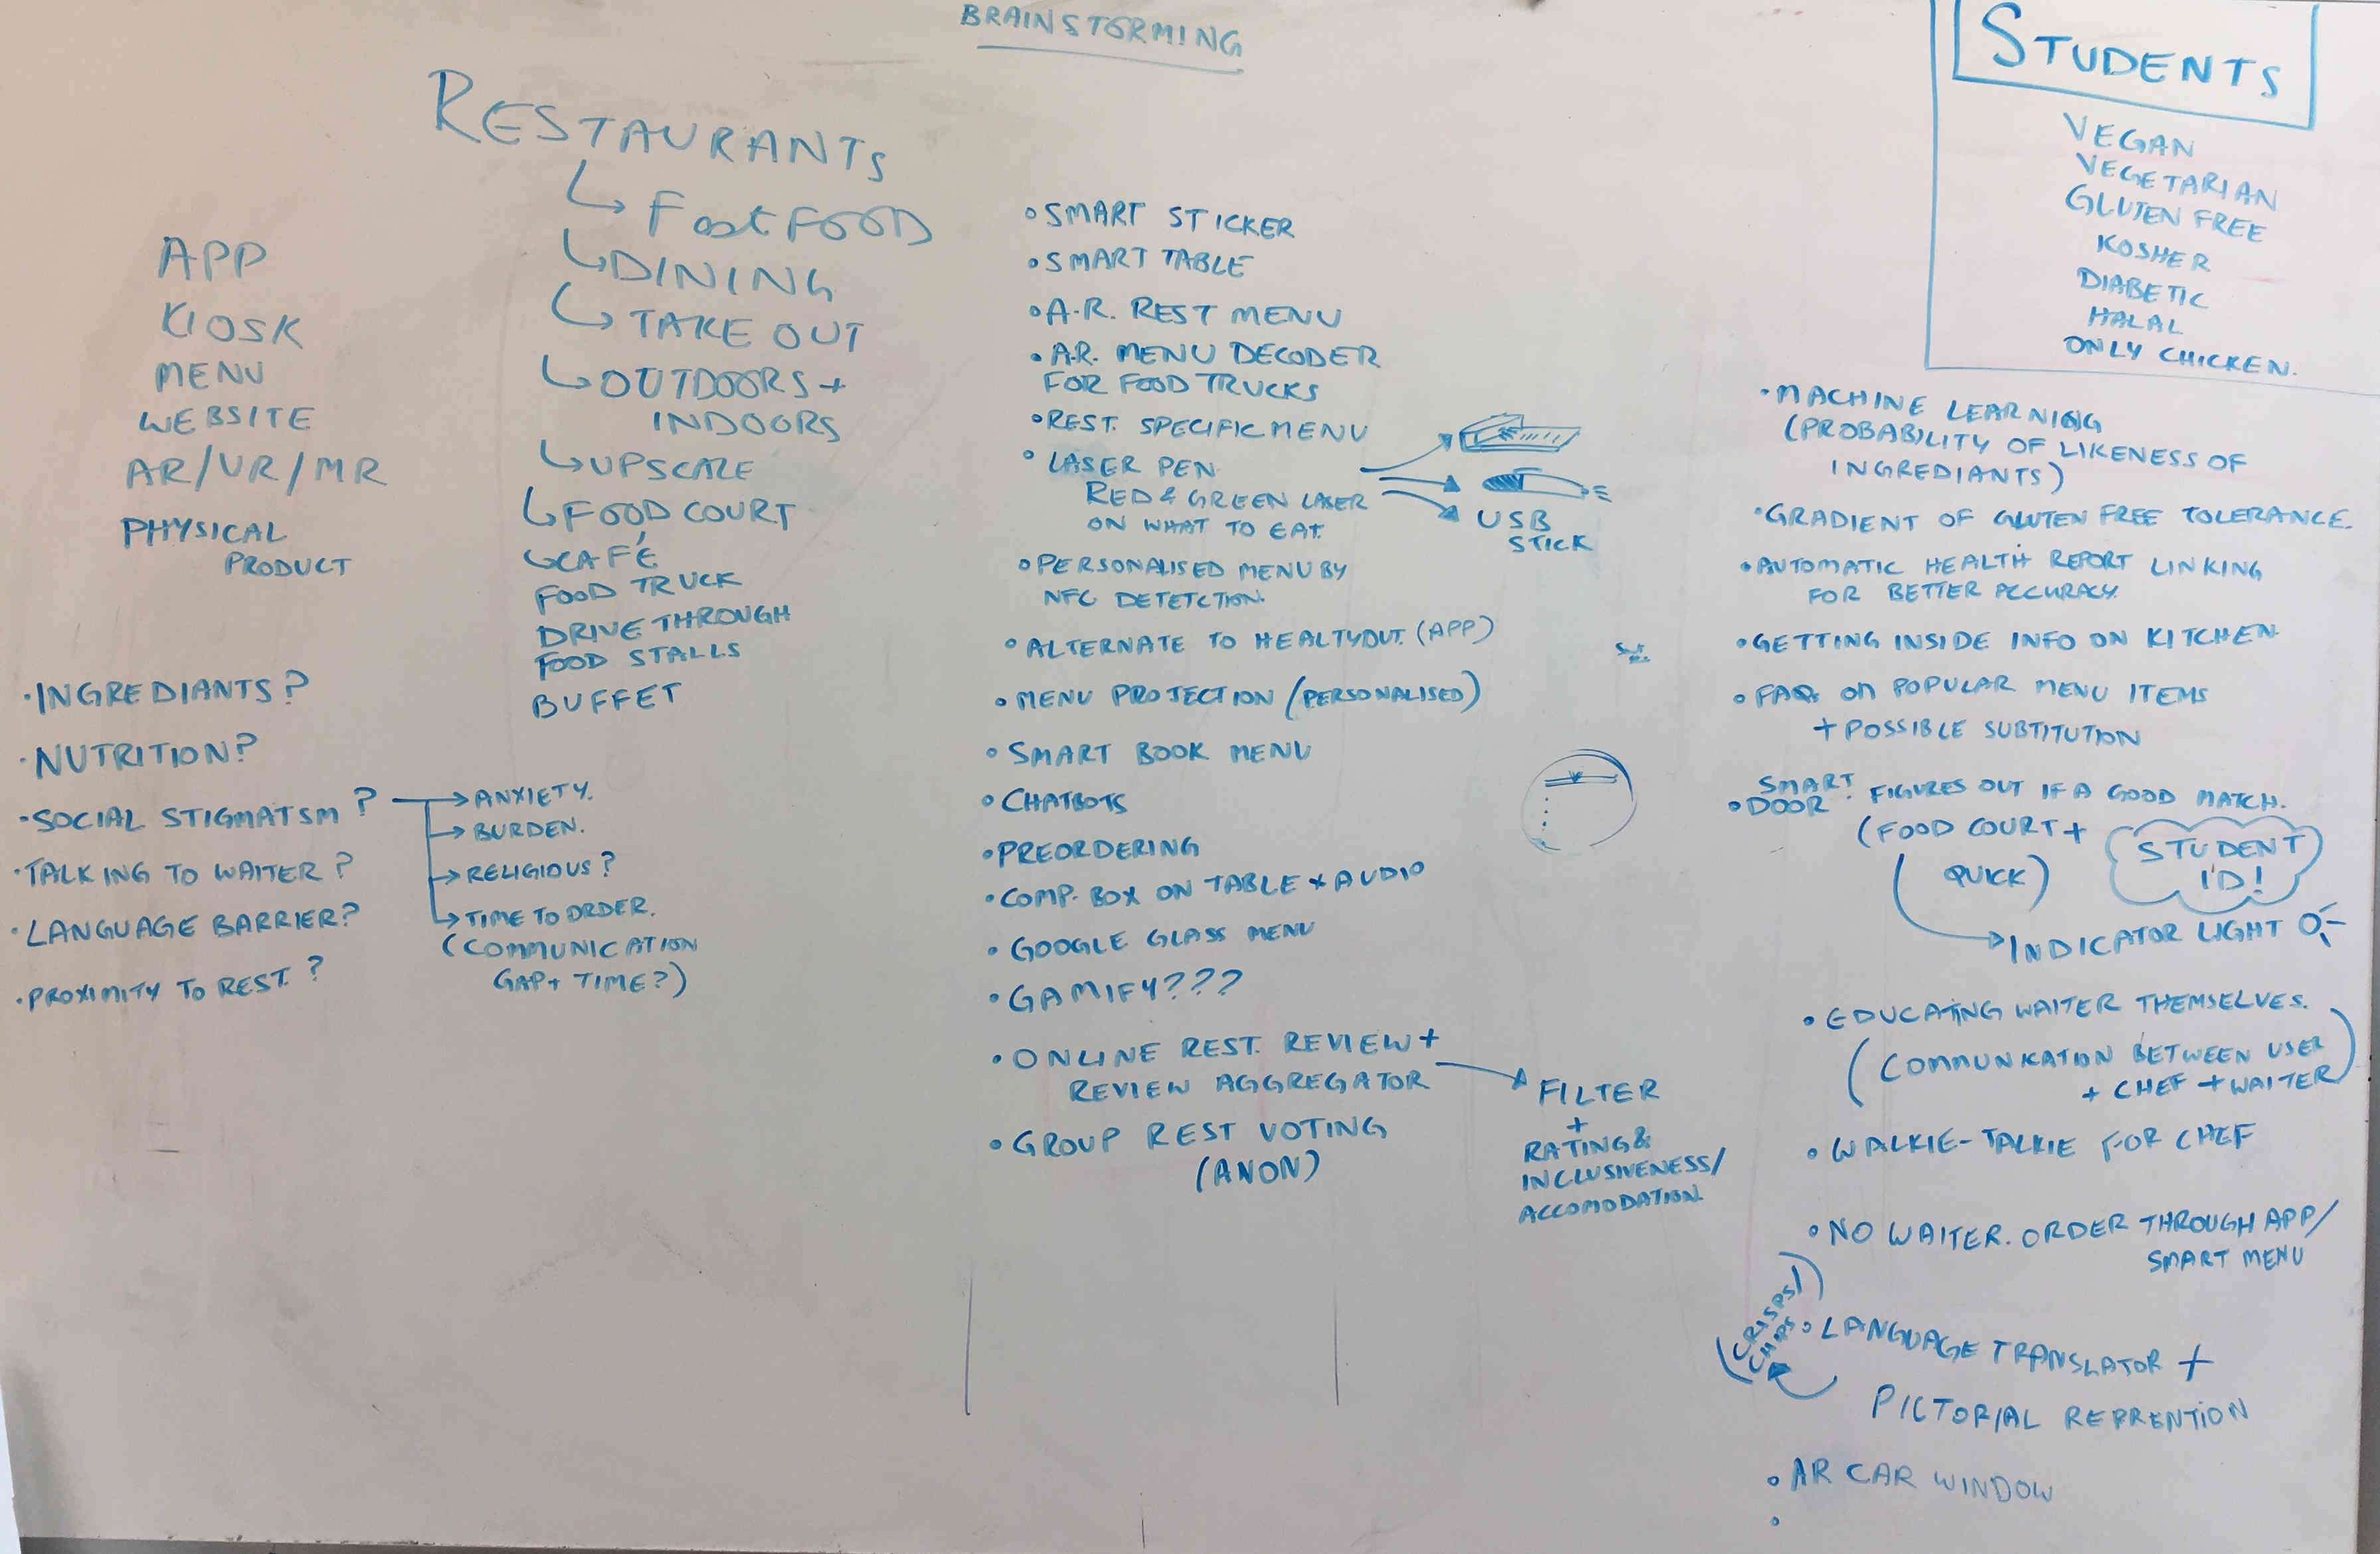 BRAINSTORMING
RESTAURANTS
FastFOOD
DINING
TAKE OUT
OUTDOORS +
INDOORS
UPSCALE
FOOD COURT
CAFÉ
FOOD TRUCK
DRIVE THROUGH
FOOD STALLS
BUFFET
APP
KIOSK
MENU
WEBSITE
AR/VR/MR
PHYSICAL
PRODUCT
•INGREDIANTS?
•NUTRITION?
•SOCIAL STIGMATSM?
ANXIETY.
BURDEN.
RELIGIOUS?
TIME TO ORDER.
(COMMUNICATION
GAP+ TIME?)
•TALKING TO WAITER?
•LANGUAGE BARRIER?
•PROXIMITY TO REST.?
•SMART STICKER
•SMART TABLE
•A.R. REST MENU
•A.R. MENU DECODER
FOR FOOD TRUCKS
•REST. SPECIFIC MENU
•LASER PEN
RED & GREEN LASER
ON WHAT TO EAT.
USB
STICK
•PERSONALISED MENU BY
NFC DETETCTION.
•ALTERNATE TO HEALTYOUT. (APP)
•MENU PROJECTION (PERSONALISED)
•SMART BOOK MENU
•CHATBOTS
•PREORDERING
•COMP. BOX ON TABLE + AUDIO
•GOOGLE GLASS MENU
•GAMIFY???
•ONLINE REST. REVIEW +
REVIEW AGGREGATOR
FILTER
+
RATING &
INCLUSIVENESS/
ACCOMODATION.
•GROUP REST VOTING
(ANON)
STUDENTS
VEGAN
VEGETARIAN
GLUTEN FREE
KOSHER
DIABETIC
HALAL
ONLY CHICKEN.
•MACHINE LEARNING
(PROBABILITY OF LIKENESS OF
INGREDIANTS)
•GRADIENT OF GLUTEN FREE TOLERANCE.
•AUTOMATIC HEALTH REPORT LINKING
FOR BETTER ACCURACY.
•GETTING INSIDE INFO ON KITCHEN.
•FAQs on POPULAR MENU ITEMS
+ POSSIBLE SUBTITUTION
•SMART DOOR: FIGURES OUT IF A GOOD MATCH.
(FOOD COURT +
QUICK)
STUDENT
ID!
INDICATOR LIGHT
•EDUCATING WAITER THEMSELVES.
(COMMUNICATION BETWEEN USER
+ CHEF + WAITER)
•WALKIE-TALKIE FOR CHEF
•NO WAITER. ORDER THROUGH APP/
SMART MENU
(CRISPS/
CHIPS)
•LANGUAGE TRANSLATOR +
PICTORIAL REPRENTION
•AR CAR WINDOW
•